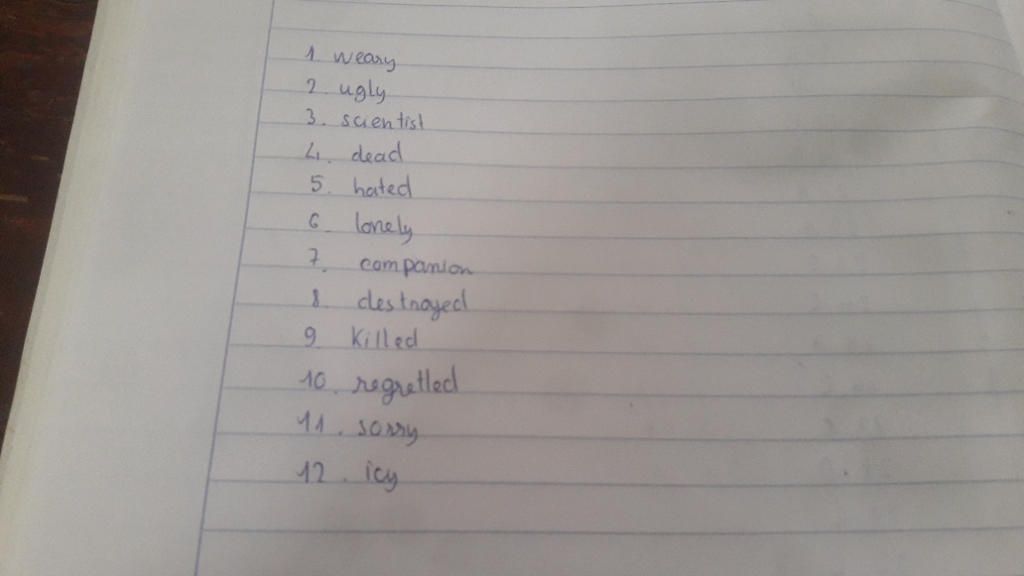 1. weary
2. ugly
3. scientist
4. dead
5. hated
6. lonely
7. companion
8. destroyed
9. Killed
10. regretled
11. sorry
12. icy